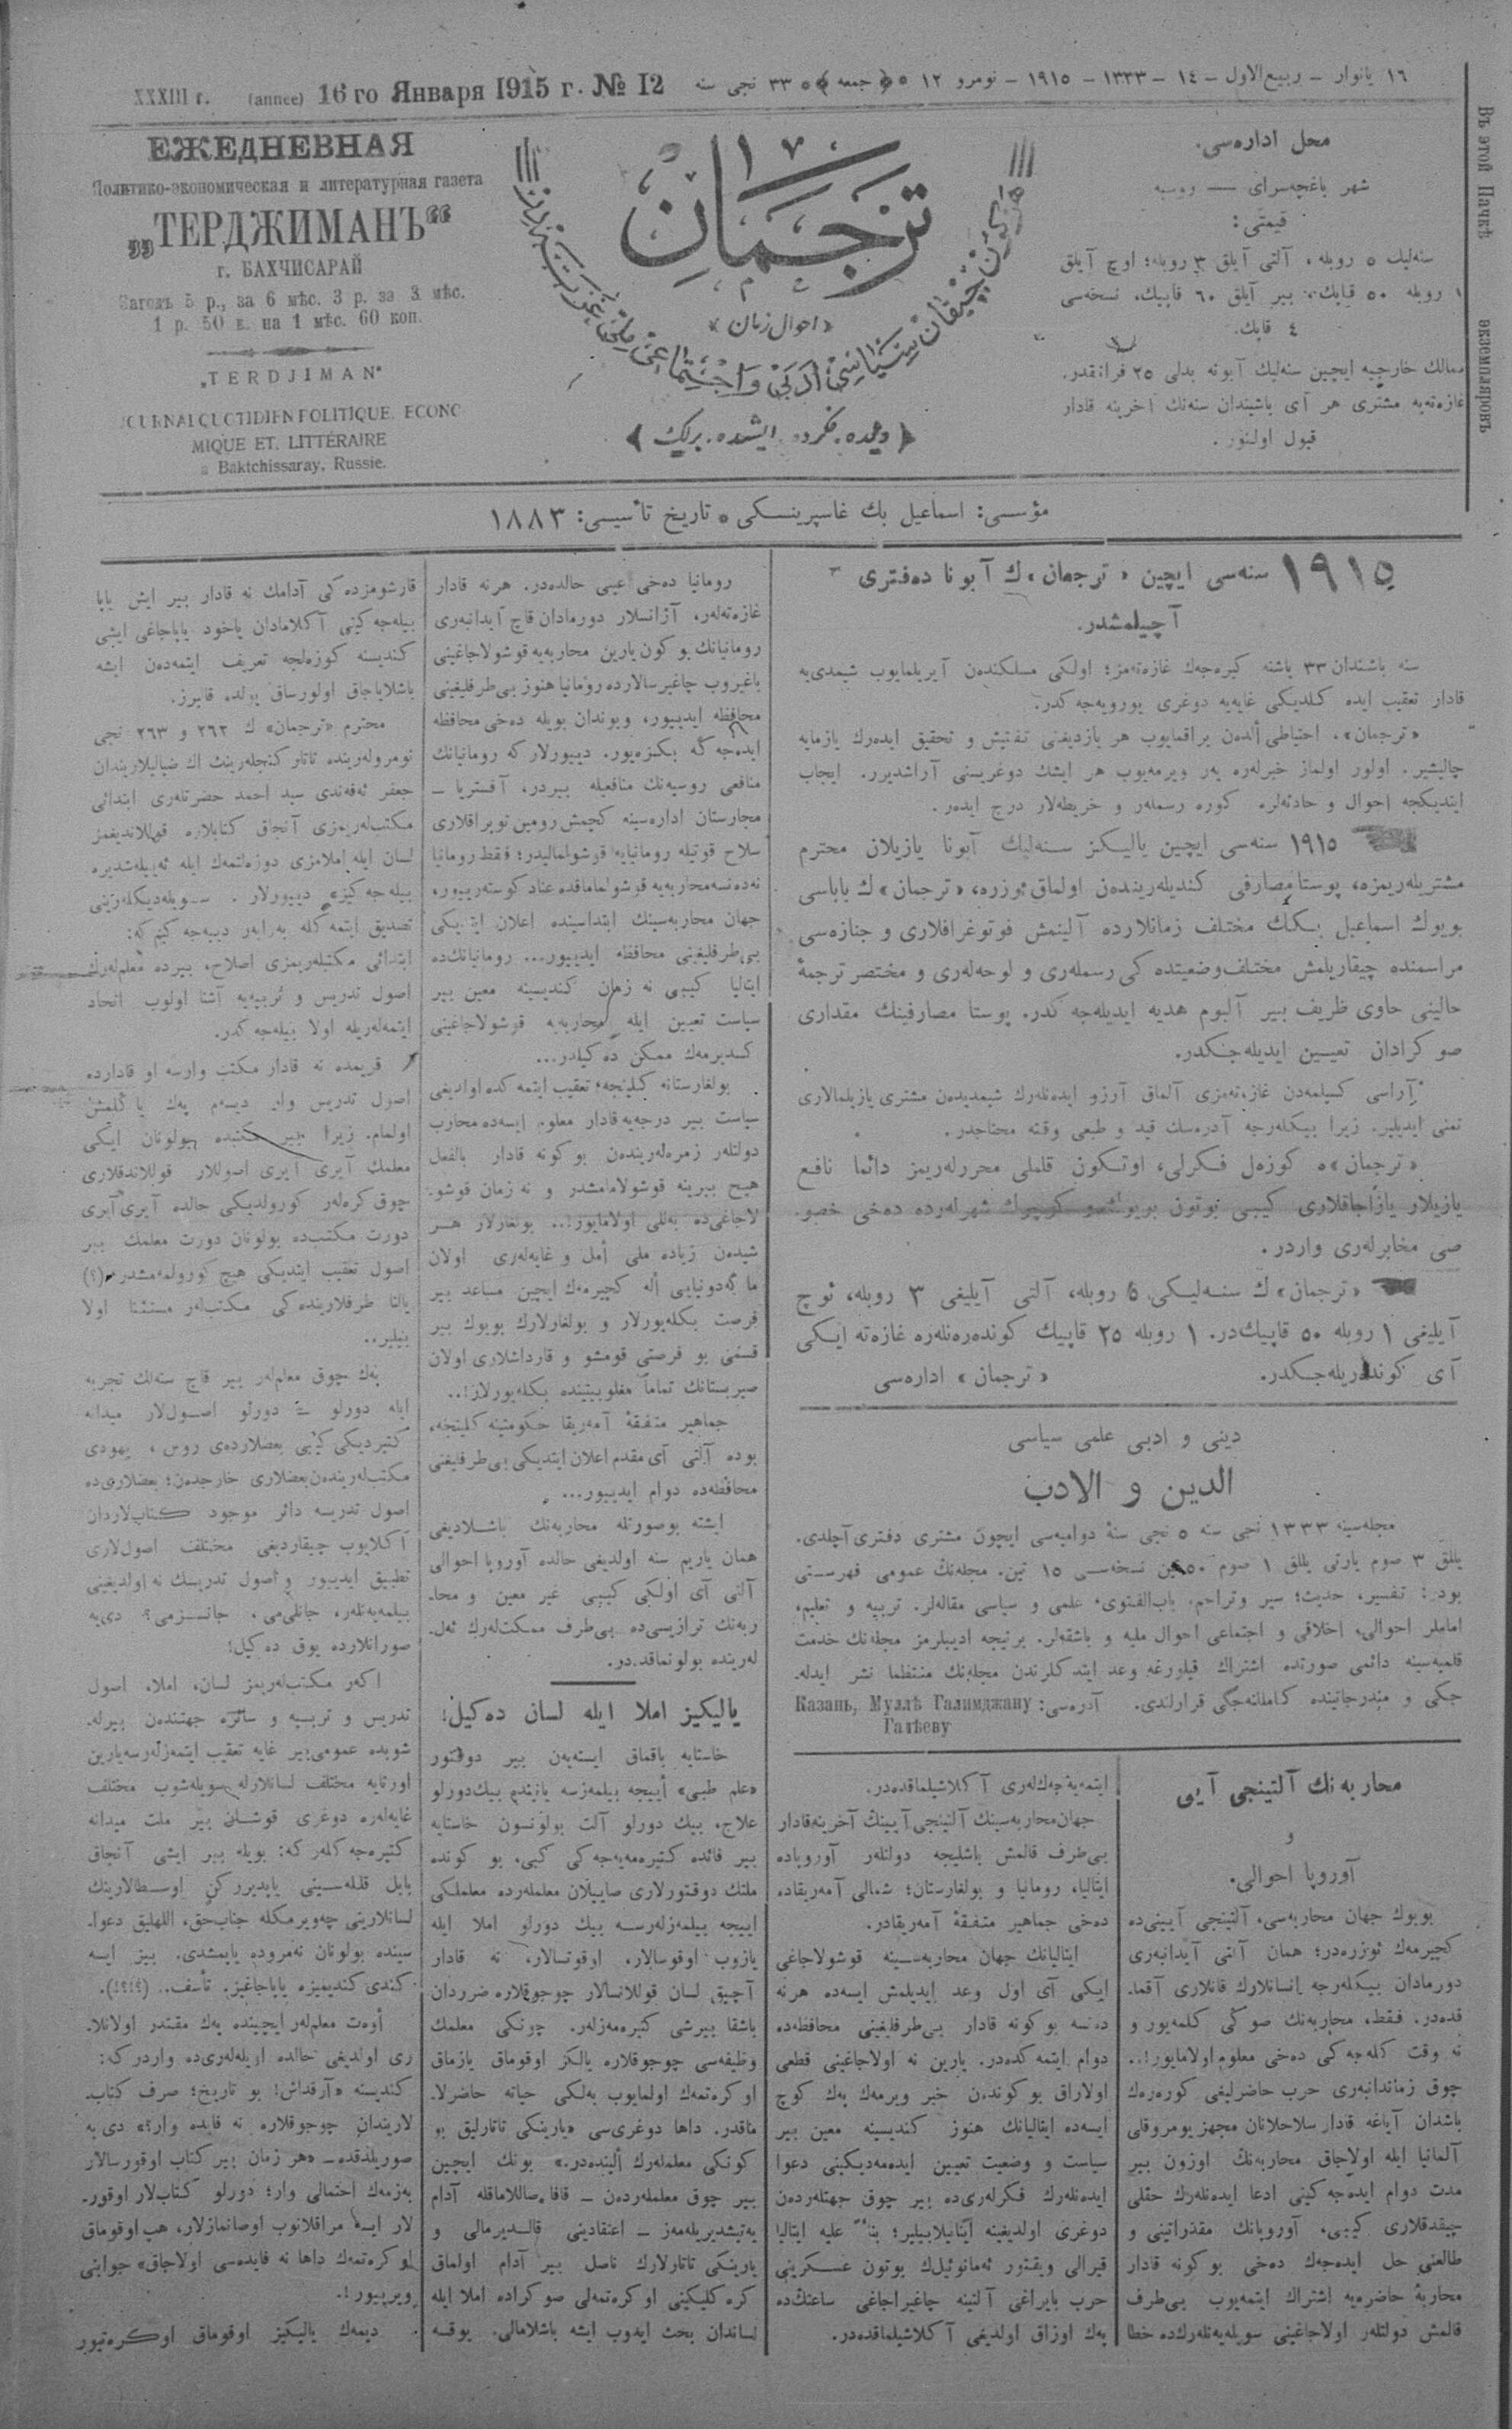 XXXIII г. (annee) 16 го Января 1915 г. № 12
١٦ يانوار – ربيع الاول – ١٤ – ١٣٣٣ – ١٩١٥ – نومرو ١٢ ﴿جمعه﴾ ٣٣ نجى سنه
ЕЖЕДНЕВНАЯ
Политико-экономическая и литературная газета
„ТЕРДЖИМАНЪ“
г. БАХЧИСАРАЙ
За годъ 5 р., за 6 мѣс. 3 р. за 3 мѣс.
1 р. 50 к. на 1 мѣс. 60 коп.
„TERDJIMAN“
JOURNAL QUOTIDIEN POLITIQUE. ECONO-
MIQUE ET. LITTÉRAIRE
a Baktchissaray, Russie.
ترجمان
«احوال زمان»
﴿ديلده. فكرده. ايشده. برلك﴾
محل اداره‌سى.
شهر باغچه‌سراى — روسيه
قيمتى:
سنه‌ليك ٥ روبله، آلتى آيلق ٣ روبله؛ اوچ آيلق
١ روبله ٥٠ قاپيك، بير آيلق ٦٠ قاپيك، نسخه‌سى
٤ قاپك.
ممالك خارجيه ايچين سنه‌ليك آبونه بدلى ٢٥ فرانقدر.
غازه‌ته‌يه مشترى هر آى باشيندان سنه‌نك آخرينه قادار
قبول اولنور.
Въ этой Пачкѣ экземпляровъ
مؤسسى: اسماعيل بك غاسپرينسكى ٭ تاريخ تأسيسى: ١٨٨٣
١٩١٥ سنه‌سى ايچين «ترجمان»ك آبونا ده‌فترى
آچيلمشدر.
سنه باشندان ٣٣ ياشنه كيره‌جه‌ك غازه‌ته‌مز؛ اولكى مسلكنده‌ن آيريلمايوب شيمدى‌يه
قادار تعقيب ايده كلديكى غايه‌يه دوغرى يورويه‌جه‌كدر.
«ترجمان»، احتياطى ألدن براقمايوب هر يازديغنى تفتيش و تحقيق ايده‌رك يازمايه
چاليشير. اولور اولماز خبرلره يه‌ر ويرمه‌يوب هر ايشك دوغريسنى آراشديرر. ايجاب
ايتديكجه احوال و حادثه‌لره كوره رسملر و خريطه‌لار درج ايده‌ر.
١٩١٥ سنه‌سى ايچين ياليكز سنه‌ليك آبونا يازيلان محترم
مشتريله‌ريمزه، پوستا مصارفى كنديله‌رينده‌ن اولماق ئوزره، «ترجمان»ك باباسى
بويوك اسماعيل بكك مختلف زمانلارده آلينمش فوتوغرافلارى و جنازه‌سى
مراسمنده چيقاريلمش مختلف وضعيتده‌كى رسمله‌رى و لوحه‌له‌رى و مختصر ترجمۀ
حالينى حاوى ظريف بير آلبوم هديه ايديله‌جه‌كدر. پوستا مصارفينك مقدارى
صوكرادان تعيين ايديله‌جكدر.
آراسى كسيلمه‌دن غازه‌ته‌مزى آلماق آرزو ايده‌نله‌رك شيمديده‌ن مشترى يازيلمالارى
تمنى ايديلير. زيرا بيكله‌رجه آدره‌سك قيد و طبعى وقته محتاجدر.
«ترجمان»ه كوزه‌ل فكرلى، اوتكون قلملى محررله‌ريمز دائما نافع
يازيلار يازاجاقلارى كيبى بوتون بويوك و كوچوك شهرله‌رده ده‌خى خصو-
صى مخابرله‌رى واردر.
«ترجمان»ك سنه‌ليكى ٥ روبله، آلتى آيليغى ٣ روبله، ئوچ
آيليغى ١ روبله ٥٠ قاپيك‌در. ١ روبله ٢٥ قاپيك كونده‌ره‌نله‌ره غازه‌ته ايكى
آى كونده‌ريله‌جكدر. «ترجمان» اداره‌سى
دينى و ادبى علمى سياسى
الدين و الادب
مجله‌سينه ١٣٣٣ نجى سنه ٥ نجى سنۀ دواميه‌سى ايچون مشترى دفترى آچلدى.
يللق ٣ صوم يارتى يللق ١ صوم ٥٠ تين نسخه‌سى ١٥ تين. مجله‌نك عمومى فهرستى
بودر: تفسير، حديث؛ سير وتراجم، باب‌الفتوى، علمى و سياسى مقاله‌لر. تربيه و تعليم،
اماملر احوالى، اخلاقى و اجتماعى احوال مليه و باشقه‌لر. برنيچه اديبلرمز مجله‌نك خدمت
قلميه‌سينه دائمى صورتده اشتراك قيلورغه وعد ايتدكلرندن مجله‌نك منتظما نشر ايدله-
جكى و مندرجاتينده كاملنه‌جگى قرارلندى. آدره‌سى: Казань, Муллѣ Галимджану
Галѣеву
محاربه‌نك آلتينجى آيى
و
آوروپا احوالى.
بويوك جهان محاربه‌سى، آلتينجى آيينى‌ده
كچيرمه‌ك ئوزره‌در؛ همان آلتى آيدانبه‌رى
دورمادان بيكله‌رجه إنسانلارك قانلارى آقما-
قده‌در. فقط، محاربه‌نك صوكى كلمه‌يور و
نه وقت كله‌جه‌كى ده‌خى معلوم اولامايور!..
چوق زماندانبه‌رى حرب حاضرليغى كوره‌ره‌ك
باشدان آياغه قادار سلاحلانان مجهز يومروقلى
آلمانيا ايله اولاجاق محاربه‌نك اوزون بير
مدت دوام ايده‌جه‌كينى ادعا ايده‌نله‌رك حقلى
چيقدقلارى كيبى، آوروپانك مقدراتينى و
طالعنى حل ايده‌جه‌ك ده‌خى بوكونه قادار
محاربۀ حاضره‌يه اشتراك ايتمه‌يوب بى‌طرف
قالمش دولتلر اولاجاغينى سويله‌يه‌نله‌رك‌ده خطا
ايتمه‌يه‌جه‌كله‌رى آكلاشيلماقده‌در.
جهان محاربه‌سينك آلتينجى آيينك آخرينه‌قادار
بى‌طرف قالمش باشليجه دولتلر آوروپاده
ايتاليا، رومانيا و بولغارستان؛ شمالى آمه‌ريقاده
ده‌خى جماهير متفقۀ آمه‌ريقادر.
ايتاليانك جهان محاربه‌سينه قوشولاجاغى
ايكى آى اول وعد ايديلمش ايسه‌ده هرنه
ده‌نسه بوكونه قادار بى‌طرفليغينى محافظه‌ده
دوام ايتمه‌كده‌در. يارين نه اولاجاغينى قطعى
اولاراق بوكونده‌ن خبر ويرمه‌ك پك كوچ
ايسه‌ده ايتاليانك هنوز كنديسينه معين بير
سياست و وضعيت تعيين ايده‌مه‌ديكينى دعوا
ايده‌نله‌رك فكرله‌رى‌ده بير چوق جهتله‌رده‌ن
دوغرى اولديغينه اينانيلابيلير؛ بناءً عليه ايتاليا
قيرالى ويقتور ئه‌مانوئيل‌ك بوتون عسكرينى
حرب بايراغى آلتينه چاغيراجاغى ساعتك‌ده
پك اوزاق اولديغى آكلاشيلماقده‌در.
رومانيا ده‌خى عينى حالده‌در. هرنه قادار
غازه‌ته‌لر، آژانسلار دورمادان قاچ آيدانبه‌رى
رومانيانك بوكون يارين محاربه‌يه قوشولاجاغينى
باغيروب چاغيرسالارده رومانيا هنوز بى‌طرفليغينى
محافظه ايدييور، وبوندان بويله ده‌خى محافظه
ايده‌جه‌گه بكزه‌يور. دييورلار كه رومانيانك
منافعى روسيه‌نك منافعله بيردر، آفستريا –
مجارستان اداره‌سينه كچمش رومين توپراقلارى
سلاح قوتيله رومانيايه قوشولماليدر؛ فقط رومانيا
نه‌ده‌نسه محاربه‌يه قوشولماماقده عناد كوسته‌رييور،
جهان محاربه‌سينك ابتداسينده اعلان ايتديكى
بى‌طرفليغينى محافظه ايدييور... رومانيانك‌ده
ايتاليا كيبى نه زمان كنديسينه معين بير
سياست تعيين ايله محاربه‌يه قوشولاجاغينى
كسديرمه‌ك ممكن ده‌كيلدر...
بولغارستانه كلينجه؛ تعقيب ايتمه‌كده اولديغى
سياست بير درجه‌يه قادار معلوم ايسه‌ده محارب
دولتلر زمره‌له‌رينده‌ن بوكونه قادار بالفعل
هيچ بيرينه قوشولامامشدر و نه زمان قوشو-
لاجاغى‌ده به‌للى اولامايور!.. بولغارلار هر
شيده‌ن زياده ملى أمل و غايه‌له‌رى اولان
ماكه‌دونيايى أله كچيرمه‌ك ايچين مساعد بير
فرصت بكله‌يورلار و بولغارلارك بويوك بير
قسمى بو فرصتى قومشو و قارداشلارى اولان
صيربستانك تماماً مغلوبيتينده بكله‌يورلار!..
جماهير متفقۀ آمه‌ريقا حكومتينه كلينجه،
بوده آلتى آى مقدم اعلان ايتديكى بى‌طرفليغنى
محافظه‌ده دوام ايدييور...
ايشته بوصورتله محاربه‌نك باشلاديغى
همان ياريم سنه اولديغى حالده آوروپا احوالى
آلتى آى اولكى كيبى غير معين و محا-
ربه‌نك ترازيسى‌ده بى‌طرف مملكتله‌رك ئه‌ل-
له‌رينده بولونماقده‌در.
ياليكيز املا ايله لسان ده‌كيل!
خاستايه باقماق ايسته‌يه‌ن بير دوقتور
«علم طبى» أييجه بيلمه‌زسه يازيتدم بيك‌دورلو
علاج، بيك دورلو آلت بولونسون خاستايه
بير فائده كتيره‌مه‌يه‌جه‌كى كبى، بو كونده
ملتك دوقتورلارى صاييلان معلمله‌رده معلملكى
اييجه بيلمه‌زله‌رسه بيك دورلو املا ايله
يازوب اوقوسالار، اوقوتسالار، نه قادار
آچيق لسان قوللانسالار چوجوقلاره ضرردان
باشقا بيرشى كتيره‌مه‌زلر. چونكى معلمك
وظيفه‌سى چوجوقلاره يالكز اوقوماق يازماق
اوكره‌تمه‌ك اولمايوب به‌لكى حياته حاضرلا-
ماقدر. داها دوغرى‌سى «يارينكى تاتارليق بو
كونكى معلمله‌رك ألينده‌در.» بونك ايچين
بير چوق معلمله‌رده‌ن – قافا صاللاماقله آدام
يه‌تيشديريله‌مه‌ز – اعتقادينى قالديرمالى و
يارينكى تاتارلارك ناصل بير آدام اولماق
كره‌كليكينى اوكره‌تمه‌لى صوكراده املا ايله
لساندان بحث ايدوب ايشه باشلامالى. يوقسه
قارشومزده‌كى آدامك نه قادار بير ايش ياپا
بيله‌جه‌كينى آكلامادان ياخود ياپاجاغى ايشى
كنديسنه كوزه‌لجه تعريف ايتمه‌ده‌ن ايشه
باشلاياجاق اولورساق يولده قاليرز.
محترم «ترجمان»ك ٢٦٢ و ٢٦٣ نجى
نومروله‌رينده تاتار كنجله‌رينك اك ضياليلاريندان
جعفر ئه‌فه‌ندى سيد احمد حضرتله‌رى ابتدائى
مكتب‌له‌ريمزى آنجاق كتابلارده قوللانديغمز
لسان ايله املامزى دوزه‌لتمه‌ك ايله ئه‌ييله‌شديره
بيله‌جه‌كيز» دييورلار. سويله‌ديكله‌رينى
تصديق ايتمه‌كله به‌رابه‌ر دييه‌جه‌كيم كه:
ابتدائى مكتبله‌ريمزى اصلاح، بيرده معلم‌له‌رك
اصول تدريس و تربيه‌يه آشنا اولوب اتحاد
ايتمه‌له‌ريله اولا بيله‌جه‌كدر.
قريمده نه قادار مكتب وارسه او قادارده
اصول تدريس وار ديسه‌م پك ياكلمش
اولمام. زيرا بير مكتبده بولونان ايكى
معلمك آيرى آيرى اصوللار قوللاندقلارى
چوق كره‌لر كورولديكى حالده آيرى آيرى
دورت مكتب‌ده بولونان دورت معلمك بير
اصول تعقيب ايتديكى هيچ كورولمه‌مشدر (؟)
يالتا طرفلارينده‌كى مكتب‌لر مستثنا اولا
بيلير..
پك چوق معلم‌لر بير قاچ سنه‌لك تجربه
ايله دورلو دورلو اصول‌لار ميدانه
كتيرديكى كيبى بعضلارده‌ى روس، يهودى
مكتب‌له‌رينده‌ن بعضلارى خارجده‌ن؛ بعضلارى‌ده
اصول تدريسه دائر موجود كتاب‌لاردان
آكلايوب چيقارديغى مختلف اصول‌لارى
تطبيق ايدييور و اصول تدريسك نه اولديغينى
بيلمه‌يه‌نلر، جانلى‌مى، جانسزمى؟ دى‌يه
صورانلارده يوق ده‌كيل!
اكه‌ر مكتب‌له‌ريمز لسان، املا، اصول
تدريس و تربيه و سائره جهتندن بيرله-
شوبده عمومى بير غايه تعقيب ايتمه‌زلرسه يارين
اورتايه مختلف لسانلارله سويله‌شوب مختلف
غايه‌له‌ره دوغرى قوشان بير ملت ميدانه
كتيره‌جه‌كلر كه: بويله بير ايشى آنجاق
بابل قلله‌سينى ياپديرركن اوسطالارينك
لسانلارينى چه‌ويرمكله جناب‌حق، اللهليق دعوا-
سينده بولونان نمروده ياپمشدى. بيز ايسه
كندى كنديميزه ياپاجاغيز. تأسف.. (؟!؟!).
أوه‌ت معلم‌لر ايچينده پك مقتدر اولانلا-
رى اولديغى حالده اويله‌له‌رى‌ده واردر كه:
كنديسنه «آرقداش! بو تاريخ؛ صرف كتاب-
لاريندان چوجوقلاره نه فايده وار؟» دى‌يه
صوريلدقده – «هر زمان بير كتاب اوقورسالار
به‌زمه‌ك احتمالى وار؛ دورلو كتاب‌لار اوقور-
لار ايسه مراقلانوب اوصانمازلار، هپ اوقوماق
اوكره‌تمه‌ك داها نه فايده‌سى اولاجاق» جوابنى
ويرييور!.
ديمه‌ك ياليكيز اوقوماق اوكره‌تيور